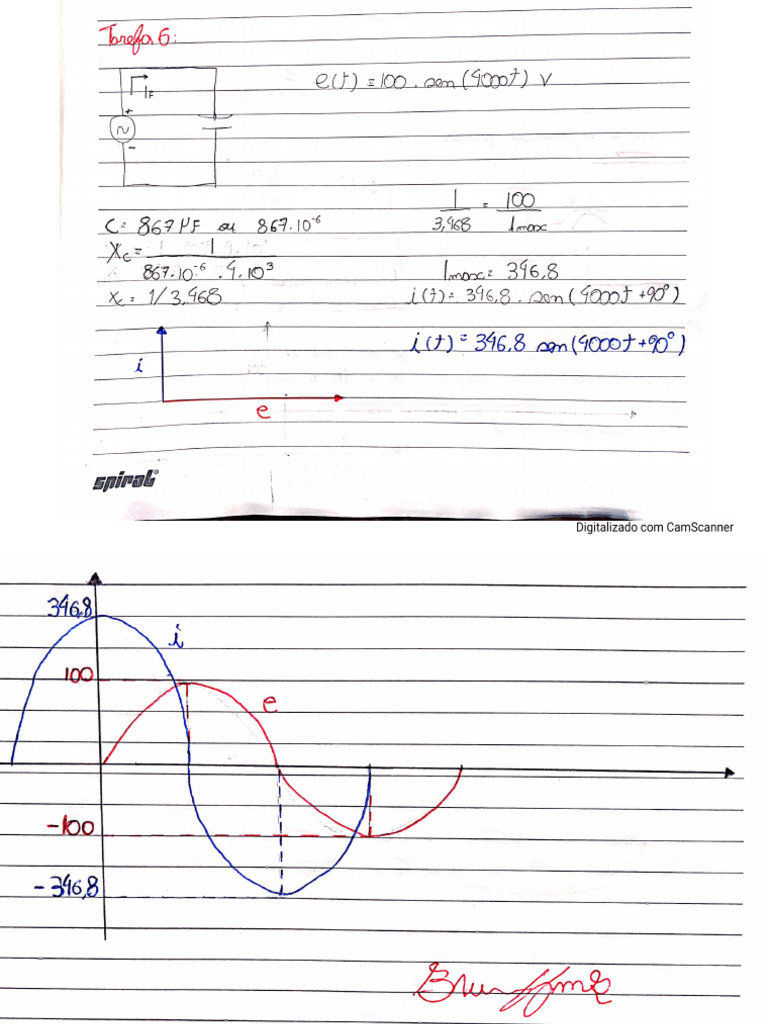 Tarefa 6:
e(t) = 100 . sen(4000t) V
IF
+
~
-
C = 867 μF ou 867.10⁻⁶
1/3,468 = 100/Imax
Xc = 1/867.10⁻⁶ . 4.10³
Imax = 346,8
Xc = 1/3,468
i(t) = 346,8 . sen(4000t +90°)
i(t) = 346,8 sen(4000t +90°)
i
e
spiral®
Digitalizado com CamScanner
346,8
i
100
e
-100
-346,8